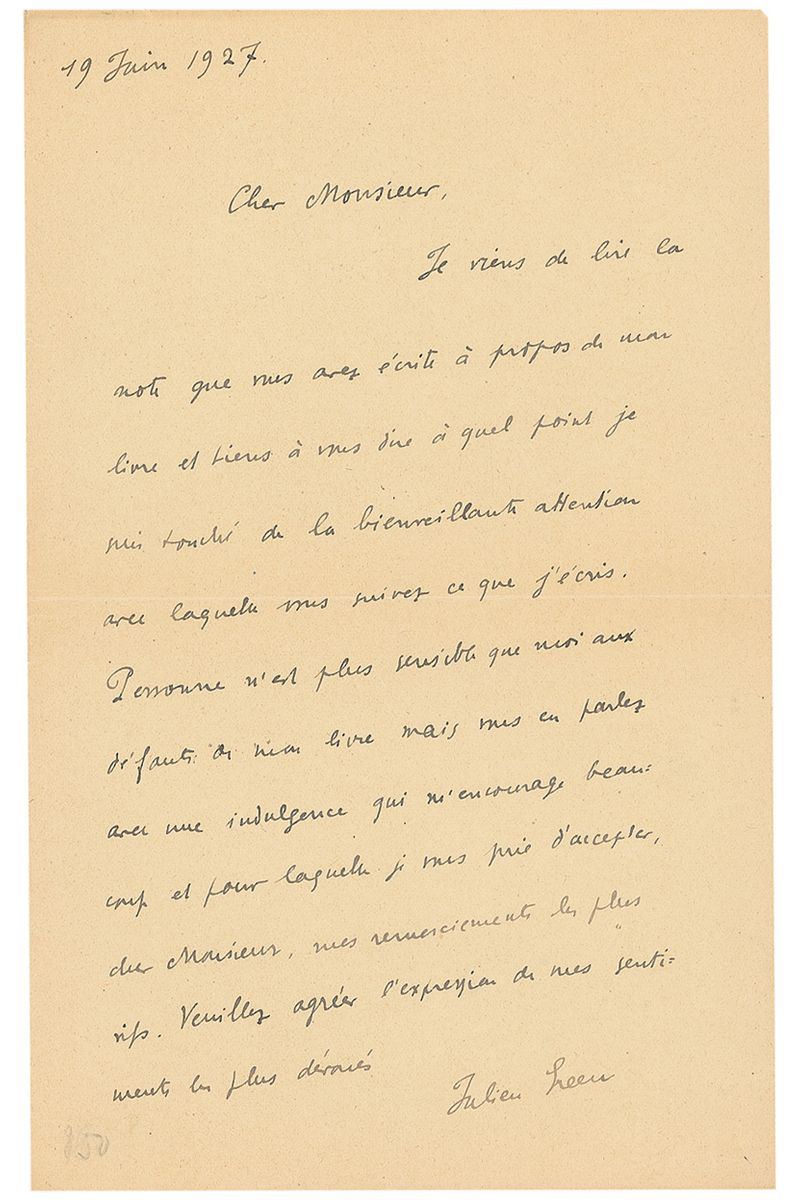 19 Juin 1927.
Cher Monsieur,
Je viens de lire la
note que vous avez écrite à propos de mon
livre et tiens à vous dire à quel point je
suis touché de la bienveillante attention
avec laquelle vous suivez ce que j'écris.
Personne n'est plus sensible que moi aux
défauts de mon livre mais vous en parlez
avec une indulgence qui m'encourage beau=
coup et pour laquelle je vous prie d'accepter,
cher Monsieur, mes remerciements les plus
vifs. Veuillez agréer l'expression de mes senti=
ments les plus dévoués
Julien Green